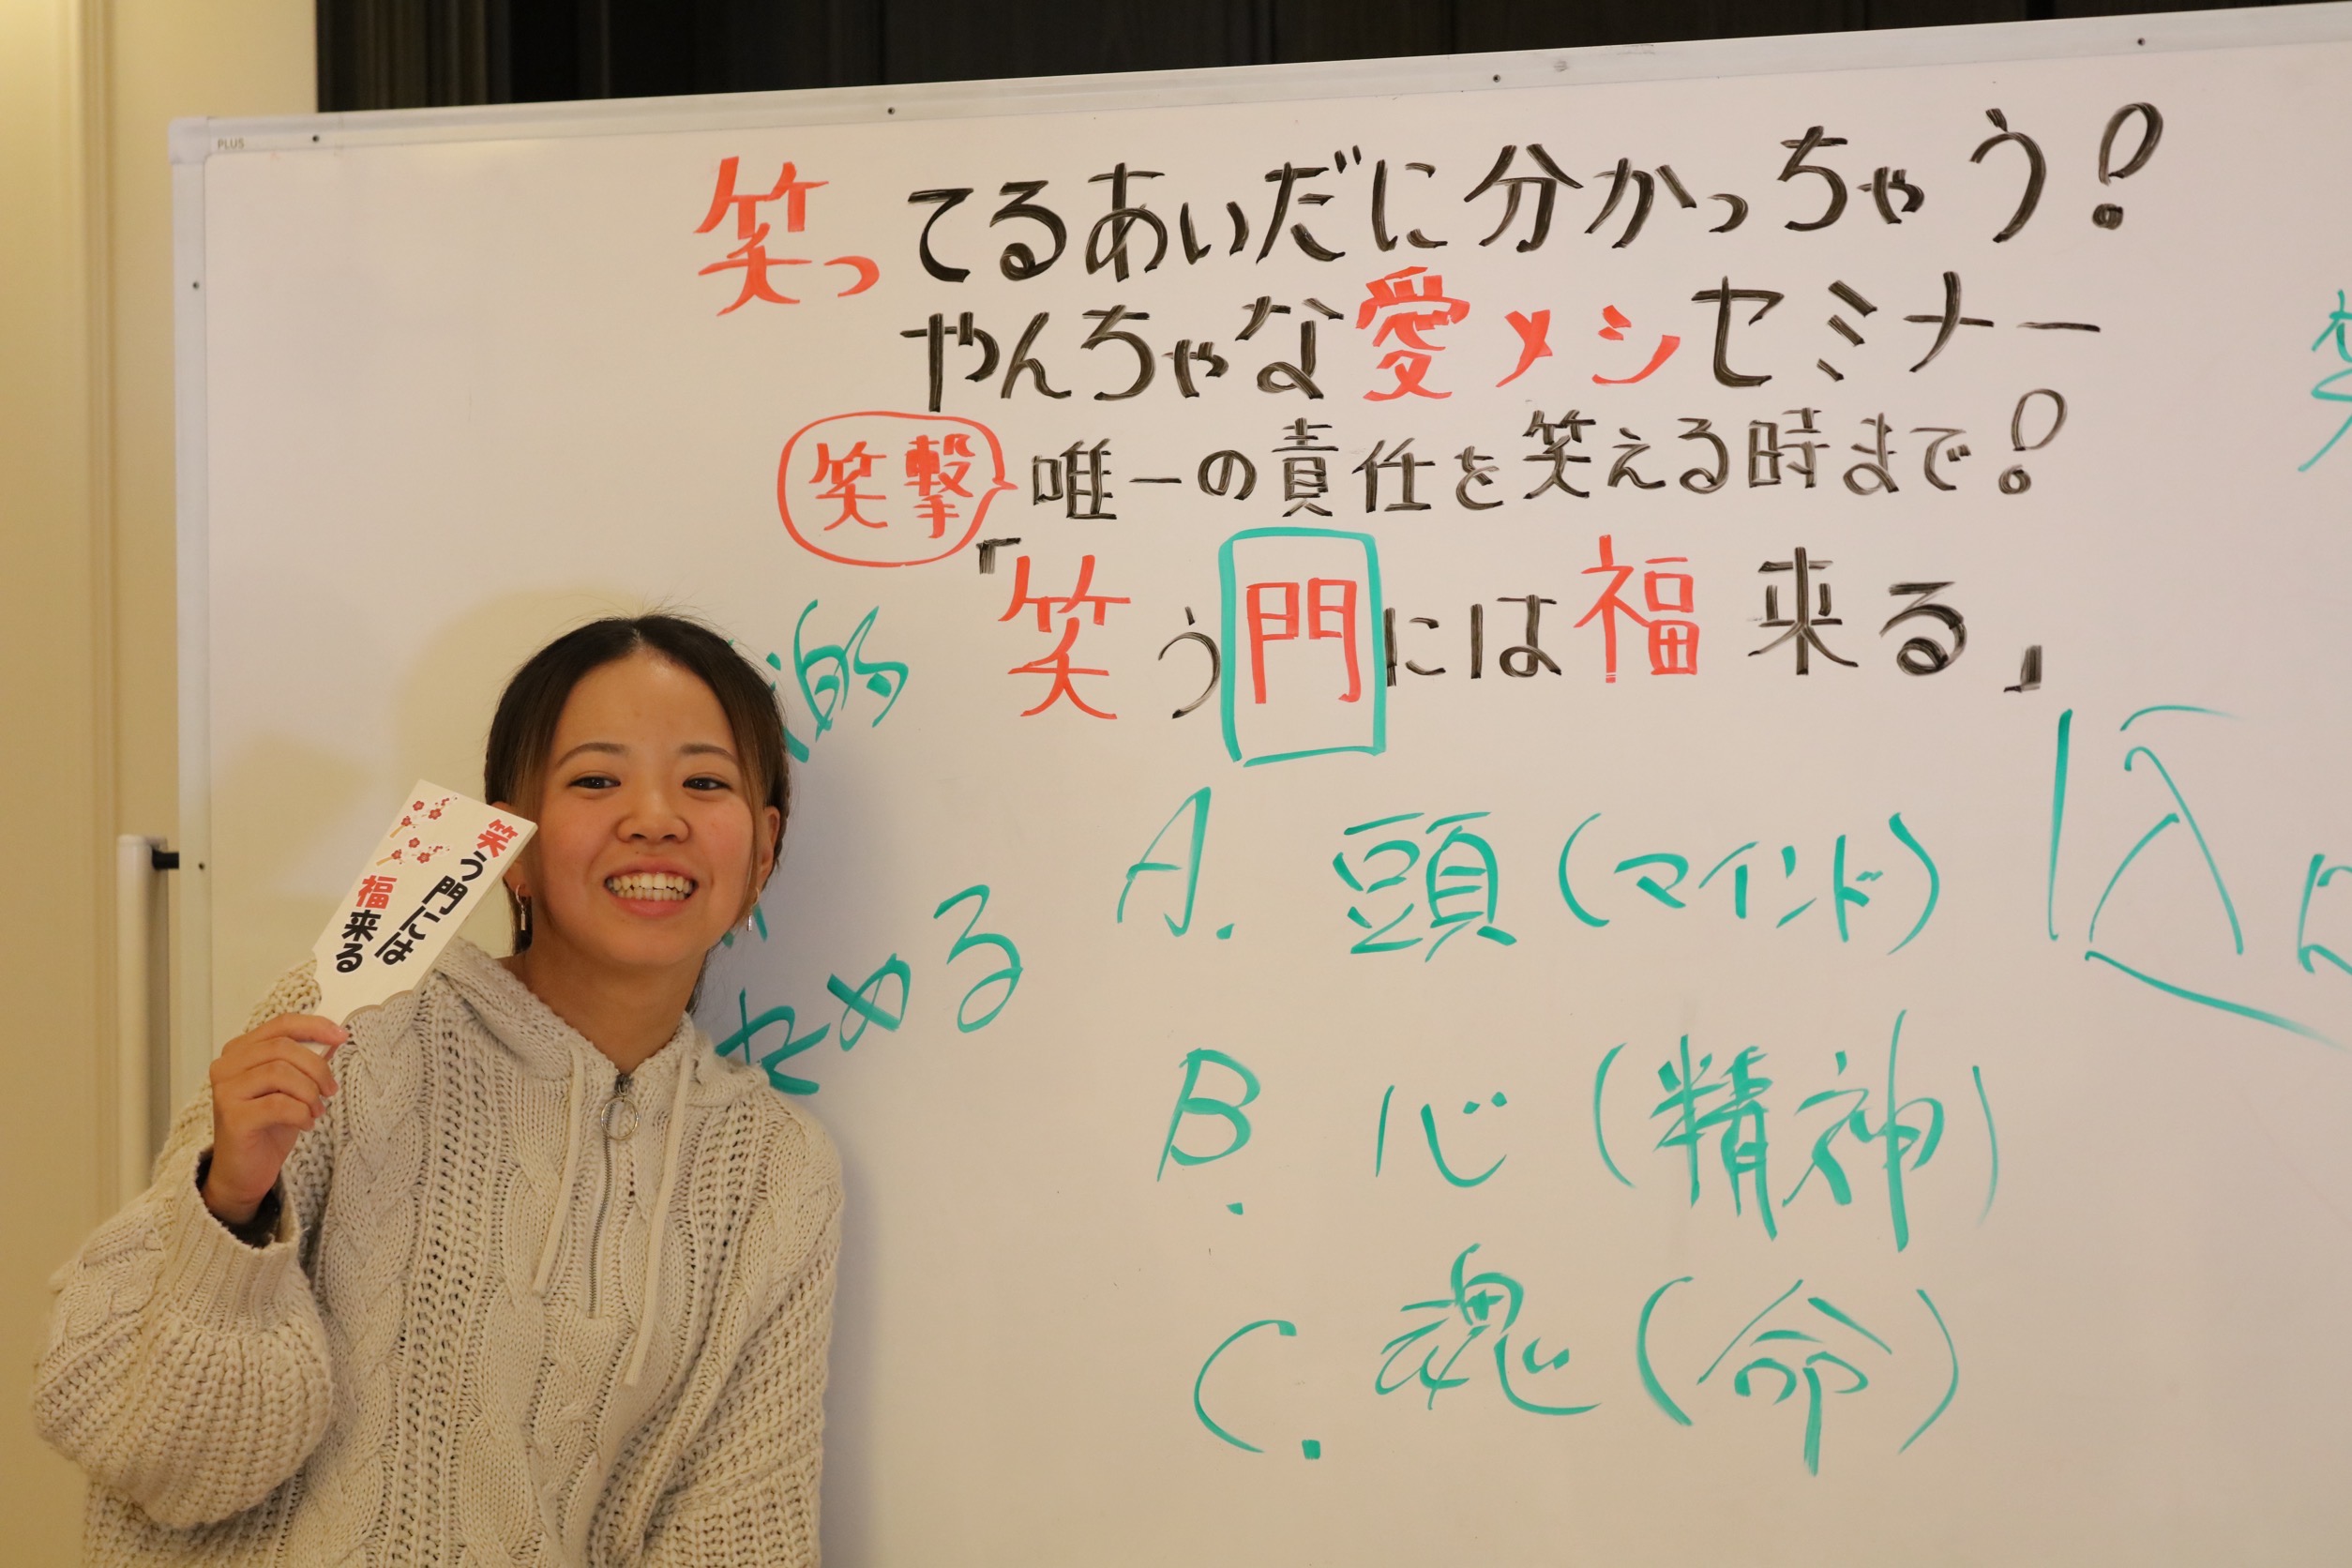 PLUS
笑ってるあいだに分かっちゃう?
やんちゃな愛メシセミナー
笑撃 唯一の責任を笑える時まで?
「笑う門には福来る」
的
める
A. 頭(マインド)
B. 心(精神)
C. 魂(命)
笑う門には
福来る